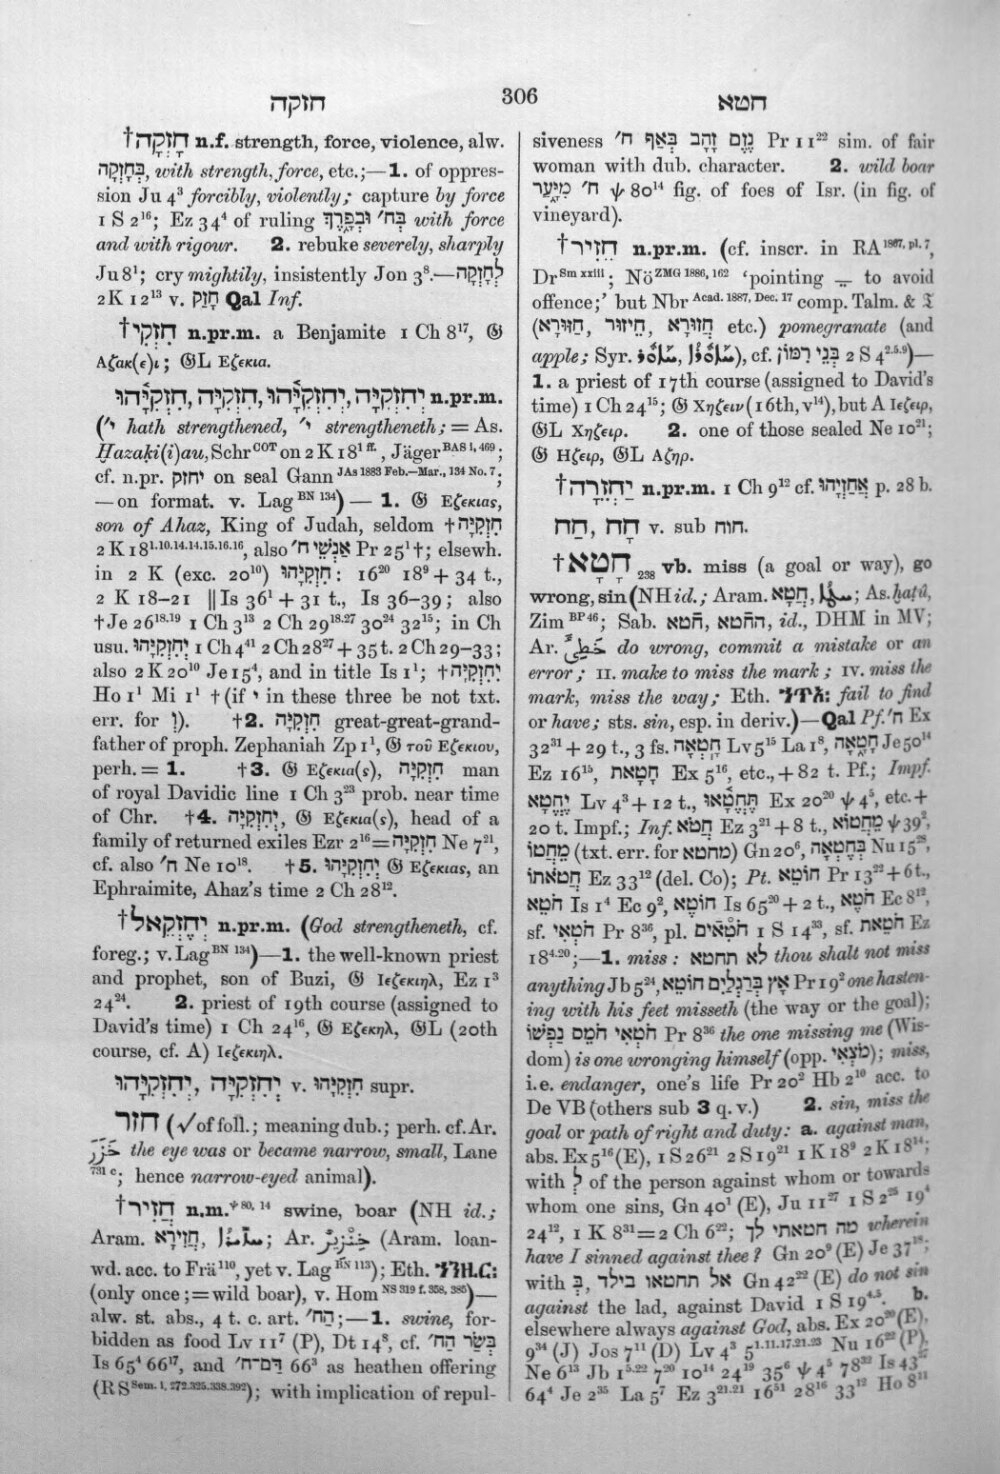 חזקה
306
חטא
†חָזְקָה n.f. strength, force, violence, alw.
בְּחָזְקָה, with strength, force, etc.;—1. of oppres-
sion Ju 4³ forcibly, violently; capture by force
1 S 2¹⁶; Ez 34⁴ of ruling בְּח׳ וּבְפָרֶךְ with force
and with rigour. 2. rebuke severely, sharply
Ju 8¹; cry mightily, insistently Jon 3⁸.—לְחָזְקָה
2 K 12¹³ v. חָזַק Qal Inf.
†חִזְקִי n.pr.m. a Benjamite 1 Ch 8¹⁷, 𝔊
Αζακ(ε)ι; 𝔊L Εζεκια.
יְחִזְקִיָּה, יְחִזְקִיָּ֫הוּ, חִזְקִיָּה, חִזְקִיָּ֫הוּ n.pr.m.
(י׳ hath strengthened, י׳ strengtheneth; = As.
Ḫazaḳi(i)au, Schr COT on 2 K 18¹ ff., Jäger BAS i, 469;
cf. n.pr. יחזק on seal Gann JAs 1883 Feb.—Mar., 134 No. 7;
—on format. v. Lag BN 134)—1. 𝔊 Εζεκιας,
son of Ahaz, King of Judah, seldom †חִזְקִיָּה
2 K 18¹·¹⁰·¹⁴·¹⁴·¹⁵·¹⁶·¹⁶, also אַנְשֵׁי ח׳ Pr 25¹†; elsewh.
in 2 K (exc. 20¹⁰) חִזְקִיָּהוּ: 16²⁰ 18⁹ + 34 t.,
2 K 18–21 ‖ Is 36¹ + 31 t., Is 36–39; also
†Je 26¹⁸·¹⁹ 1 Ch 3¹³ 2 Ch 29¹⁸·²⁷ 30²⁴ 32¹⁵; in Ch
usu. יְחִזְקִיָּהוּ 1 Ch 4⁴¹ 2 Ch 28²⁷ + 35 t. 2 Ch 29–33;
also 2 K 20¹⁰ Je 15⁴, and in title Is 1¹; †יְחִזְקִיָּה
Ho 1¹ Mi 1¹ †(if י in these three be not txt.
err. for ו). †2. חִזְקִיָּה great-great-grand-
father of proph. Zephaniah Zp 1¹, 𝔊 τοῦ Εζεκιου,
perh. = 1. †3. 𝔊 Εζεκια(ς), חִזְקִיָּה man
of royal Davidic line 1 Ch 3²³ prob. near time
of Chr. †4. יְחִזְקִיָּה, 𝔊 Εζεκια(ς), head of a
family of returned exiles Ezr 2¹⁶=חִזְקִיָּה Ne 7²¹,
cf. also ח׳ Ne 10¹⁸. †5. יְחִזְקִיָּהוּ 𝔊 Εζεκιας, an
Ephraimite, Ahaz's time 2 Ch 28¹².
†יְחֶזְקֵאל n.pr.m. (God strengtheneth, cf.
foreg.; v. Lag BN 134)—1. the well-known priest
and prophet, son of Buzi, 𝔊 Ιεζεκιηλ, Ez 1³
24²⁴. 2. priest of 19th course (assigned to
David's time) 1 Ch 24¹⁶, 𝔊 Εζεκηλ, 𝔊L (20th
course, cf. A) Ιεζεκιηλ.
יְחִזְקִיָּה, יְחִזְקִיָּהוּ v. חִזְקִיָּהוּ supr.
חזר (√ of foll.; meaning dub.; perh. cf. Ar.
خَزَرَ the eye was or became narrow, small, Lane
731 c; hence narrow-eyed animal).
†חֲזִיר n.m. ψ 80, 14 swine, boar (NH id.;
Aram. חֲזִירָא, ܚܙܝܪܐ; Ar. خِنْزِيرٌ (Aram. loan-
wd. acc. to Frä ¹¹⁰, yet v. Lag BN 113); Eth. ኀንዚር:
(only once; = wild boar), v. Hom NS 319 f. 358, 385)—
alw. st. abs., 4 t. c. art. הַח׳;—1. swine, for-
bidden as food Lv 11⁷ (P), Dt 14⁸, cf. בְּשַׂר הַח׳
Is 65⁴ 66¹⁷, and דַּם־ח׳ 66³ as heathen offering
(RS Sem. i, 272.325.338.392); with implication of repul-
siveness נֶזֶם זָהָב בְּאַף ח׳ Pr 11²² sim. of fair
woman with dub. character. 2. wild boar
ח׳ מִיָּ֑עַר ψ 80¹⁴ fig. of foes of Isr. (in fig. of
vineyard).
†חֵזִיר n.pr.m. (cf. inscr. in RA 1867, pl. 7,
Dr Sm xxiii; Nö ZMG 1886, 162 'pointing ֵ to avoid
offence;' but Nbr Acad. 1887, Dec. 17 comp. Talm. & 𝔗
(חֲזוּרָא, חֵיזוּר, חַזּוּרָא etc.) pomegranate (and
apple; Syr. ܚܙܘܪܐ, ܚܙܘܪ), cf. בְּנֵי רִמּוֹן 2 S 4²·⁵·⁹)—
1. a priest of 17th course (assigned to David's
time) 1 Ch 24¹⁵; 𝔊 Χηζειν (16th, v¹⁴), but A Ιεζειρ,
𝔊L Χηζειρ. 2. one of those sealed Ne 10²¹;
𝔊 Ηζειρ, 𝔊L Αζηρ.
†יַחְזֵרָה n.pr.m. 1 Ch 9¹² cf. אֲחַזְיָהוּ p. 28 b.
חָח, חַח v. sub חוח.
†חָטָא ₂₃₈ vb. miss (a goal or way), go
wrong, sin (NH id.; Aram. חֲטָא, ܚܛܐ; As. ḫaṭû,
Zim BP 46; Sab. חטא, החטא, id., DHM in MV;
Ar. خَطِئَ do wrong, commit a mistake or an
error; II. make to miss the mark; IV. miss the
mark, miss the way; Eth. ኀጥአ: fail to find
or have; sts. sin, esp. in deriv.)—Qal Pf. ח׳ Ex
32³¹ + 29 t., 3 fs. חָֽטְאָה Lv 5¹⁵ La 1⁸, חָטָ֑אָה Je 50¹⁴
Ez 16¹⁵, חָטָאת Ex 5¹⁶, etc., + 82 t. Pf.; Impf.
יֶחֱטָא Lv 4³ + 12 t., תֶּחֱטָ֑אוּ Ex 20²⁰ ψ 4⁵, etc. +
20 t. Impf.; Inf. חֲטֹא Ez 3²¹ + 8 t., מֵחֲטוֹא ψ 39²,
מֵחֲטוֹ (txt. err. for מחטא) Gn 20⁶, בְּחֶטְאָה Nu 15²⁸,
חֲטֹאתוֹ Ez 33¹² (del. Co); Pt. חוֹטֵא Pr 13²² + 6 t.,
חֹטֵא Is 1⁴ Ec 9², חוֹטֶא Is 65²⁰ + 2 t., חֹטֶא Ec 8¹²,
sf. חֹטְאִי Pr 8³⁶, pl. חֹטְאִים 1 S 14³³, sf. חֹטֵאת Ez
18⁴·²⁰;—1. miss: לֹא תחטא thou shalt not miss
anything Jb 5²⁴, אָץ בְּרַגְלַיִם חוֹטֵא Pr 19² one hasten-
ing with his feet misseth (the way or the goal);
חֹטְאִי חֹמֵס נַפְשׁוֹ Pr 8³⁶ the one missing me (Wis-
dom) is one wronging himself (opp. מֹצְאִי); miss,
i.e. endanger, one's life Pr 20² Hb 2¹⁰ acc. to
De VB (others sub 3 q. v.) 2. sin, miss the
goal or path of right and duty: a. against man,
abs. Ex 5¹⁶ (E), 1 S 26²¹ 2 S 19²¹ 1 K 18⁹ 2 K 18¹⁴;
with לְ of the person against whom or towards
whom one sins, Gn 40¹ (E), Ju 11²⁷ 1 S 2²⁵ 19⁴
24¹², 1 K 8³¹ = 2 Ch 6²²; מה חטאתי לך wherein
have I sinned against thee? Gn 20⁹ (E) Je 37¹⁸;
with בְּ, אל תחטאו בילד Gn 42²² (E) do not sin
against the lad, against David 1 S 19⁴·⁵. b.
elsewhere always against God, abs. Ex 20²⁰ (E),
9³⁴ (J) Jos 7¹¹ (D) Lv 4³ 5¹·¹¹·¹⁷·²¹·²³ Nu 16²² (P),
Ne 6¹³ Jb 1⁵·²² 7²⁰ 10¹⁴ 24¹⁹ 35⁶ ψ 4⁵ 78³² Is 43²⁷
64⁴ Je 2³⁵ La 5⁷ Ez 3²¹·²¹ 16⁵¹ 28¹⁶ 33¹² Ho 8¹¹